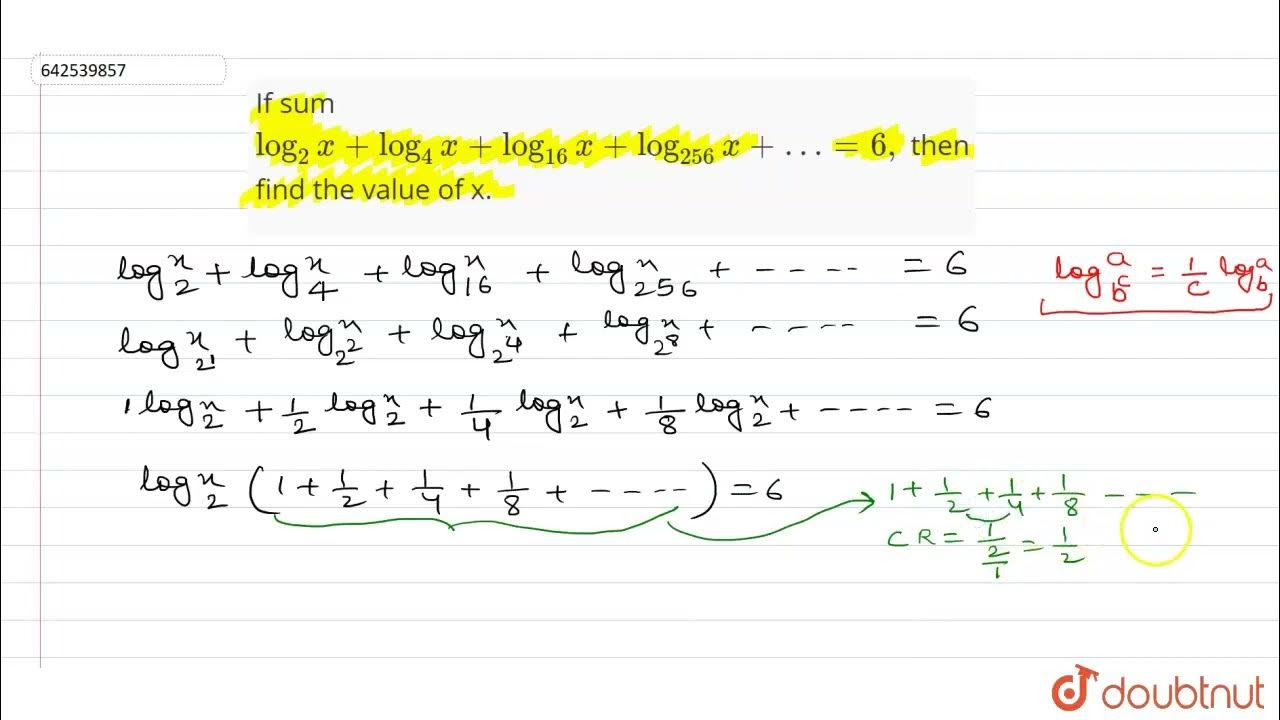 642539857
If sum
log₂ x + log₄ x + log₁₆ x + log₂₅₆ x + … = 6, then
find the value of x.
log₂ˣ + log₄ˣ + log₁₆ˣ + log₂₅₆ˣ + ---- = 6
log_{b^c}^a = 1/c log_b^a
log_{2^1}^x + log_{2^2}^x + log_{2^4}^x + log_{2^8}^x + ---- = 6
1 log₂ˣ + 1/2 log₂ˣ + 1/4 log₂ˣ + 1/8 log₂ˣ + ---- = 6
log₂ˣ (1 + 1/2 + 1/4 + 1/8 + ----) = 6
1 + 1/2 + 1/4 + 1/8 ---
CR = 1/2/1 = 1/2
doubtnut